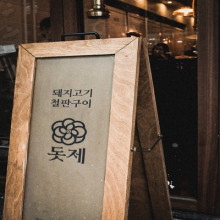 돼지고기
철판구이
돗제